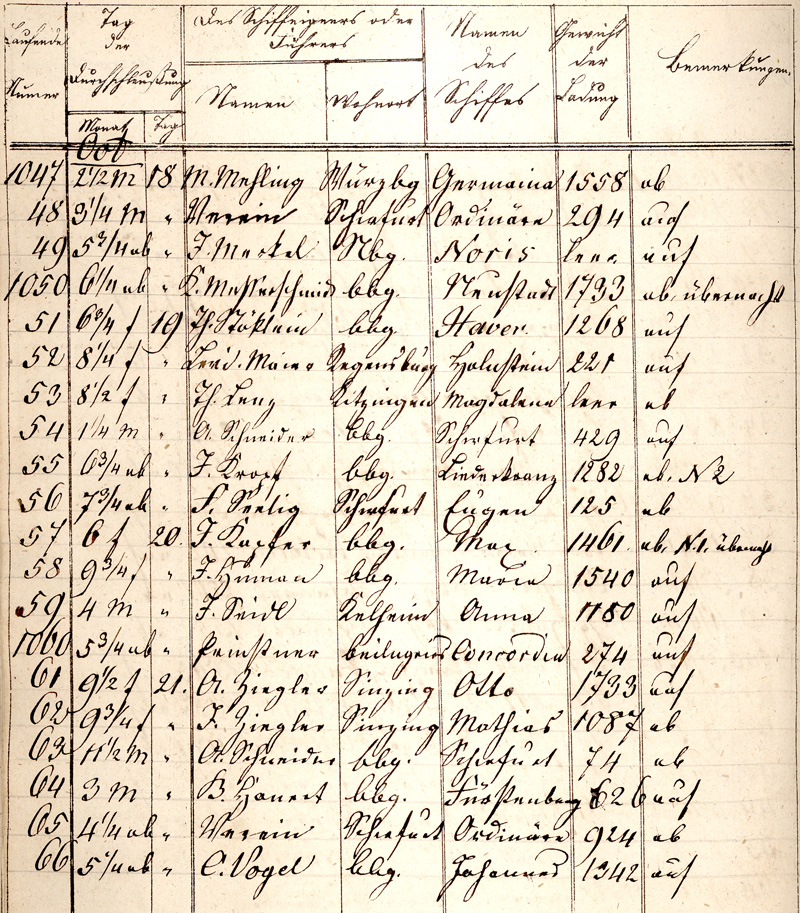 Laufende Numer | Tag der Durchschleußung | Des Schiffeigners oder Führers | Namen des Schiffes | Gewicht der Ladung | Bemerkungen.
Monat | Tag | Namen | Wohnort
Oct
1047 2 1/2 M 18 M. Mehling Würzbg Germania 1558 ab
48 3 1/4 M " Verein Schwfurt Ordinäre 294 auf
49 5 2/4 ab " J. Merkel Nbg. Noris leer auf
1050 6 1/4 ab " K. Messerschmid bbg. Neustadt 1733 ab, übernacht
51 6 3/4 f 19 Th. Stöklein bbg. Haver. 1268 auf
52 8 1/4 f " Maier Regensburg Holnstein 221 auf
53 8 1/2 f " Th. Lenz Kitzingen Magdalena leer ab
54 1 1/4 M " A. Schneider bbg. Schwfurt 429 auf
55 6 3/4 ab " J. Kropf bbg. Liederkranz 1282 ab. N 2
56 7 3/4 ab " F. Seelig Schwfurt Eugen 125 ab
57 6 f 20. J. Kapfer bbg. Max 1461. ab, N. 1. übernacht
58 9 3/4 f " J. bbg. Maria 1540 auf
59 4 M " J. Seidl Kelheim Anna 1180 auf
1060 5 3/4 ab " Prinstner beilngries Concordia 274 auf
61 9 1/2 f 21. A. Ziegler Sinzing Otto 1733 auf
62 9 3/4 f " J. Ziegler Sinzing Mathias 1087 ab
63 11 1/2 M " A. Schneider bbg. Schwfurt 74 ab
64 3 M " B. bbg. Fürstenberg 626 auf
65 4 1/4 ab " Verein Schwfurt Ordinäre 924 ab
66 5 1/4 ab " C. Vogel bbg. Johannes 1342 auf